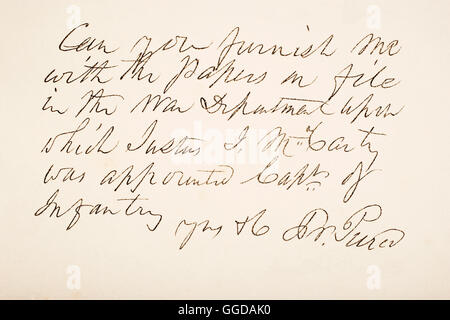 Can you furnish me
with the papers on file
in the War Department upon
which Justus I. McCarty
was appointed Capt. of
Infantry yrs &c
alamy
GGDAK0